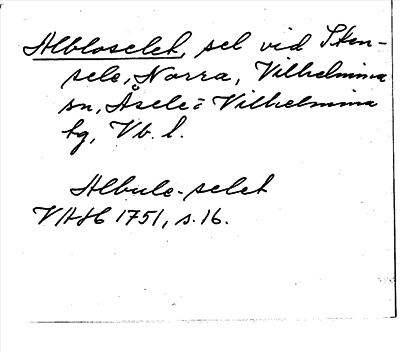 Albloselet, sel vid Sten-
sele, Norra, Vilhelmina
sn, Åsele-Vilhelmina
tg, Vb. l.
Albule-selet
VAH 1751, s. 16.